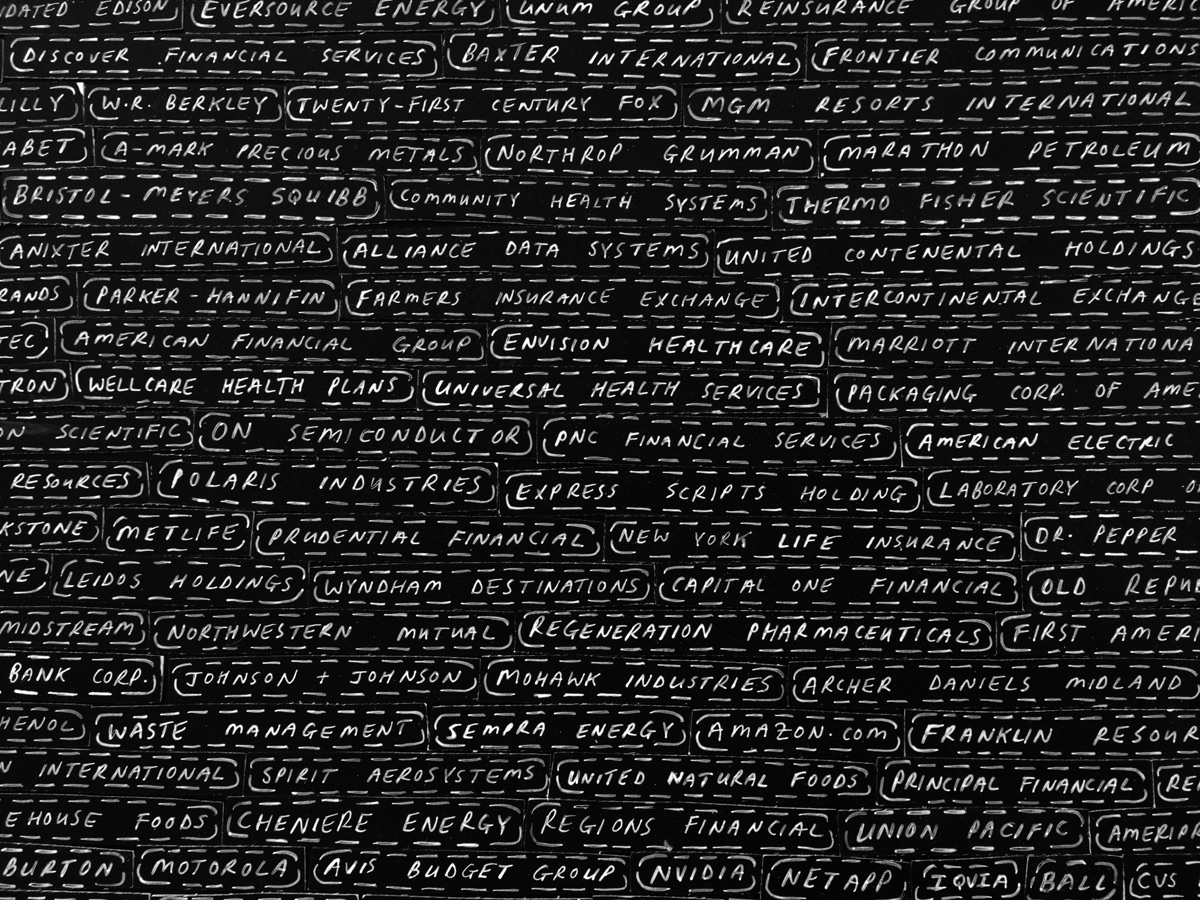 IDATED EDISON EVERSOURCE ENERGY UNUM GROUP REINSURANCE GROUP OF AMERIC
DISCOVER FINANCIAL SERVICES BAXTER INTERNATIONAL FRONTIER COMMUNICATIONS
LILLY W.R. BERKLEY TWENTY-FIRST CENTURY FOX MGM RESORTS INTERNATIONAL
ABET A-MARK PRECIOUS METALS NORTHROP GRUMMAN MARATHON PETROLEUM
BRISTOL-MEYERS SQUIBB COMMUNITY HEALTH SYSTEMS THERMO FISHER SCIENTIFIC
ANIXTER INTERNATIONAL ALLIANCE DATA SYSTEMS UNITED CONTENENTAL HOLDINGS
RANDS PARKER-HANNIFIN FARMERS INSURANCE EXCHANGE INTERCONTINENTAL EXCHANGE
TEC AMERICAN FINANCIAL GROUP ENVISION HEALTHCARE MARRIOTT INTERNATIONA
TRON WELLCARE HEALTH PLANS UNIVERSAL HEALTH SERVICES PACKAGING CORP. OF AME
ON SCIENTIFIC ON SEMICONDUCTOR PNC FINANCIAL SERVICES AMERICAN ELECTRIC
RESOURCES POLARIS INDUSTRIES EXPRESS SCRIPTS HOLDING LABORATORY CORP OF
KSTONE METLIFE PRUDENTIAL FINANCIAL NEW YORK LIFE INSURANCE DR. PEPPER
NE LEIDOS HOLDINGS WYNDHAM DESTINATIONS CAPITAL ONE FINANCIAL OLD REPU
MIDSTREAM NORTHWESTERN MUTUAL REGENERATION PHARMACEUTICALS FIRST AMERI
BANK CORP. JOHNSON + JOHNSON MOHAWK INDUSTRIES ARCHER DANIELS MIDLAND
HENOL WASTE MANAGEMENT SEMPRA ENERGY AMAZON.COM FRANKLIN RESOUR
N INTERNATIONAL SPIRIT AEROSYSTEMS UNITED NATURAL FOODS PRINCIPAL FINANCIAL RE
EHOUSE FOODS CHENIERE ENERGY REGIONS FINANCIAL UNION PACIFIC AMERIP
BURTON MOTOROLA AVIS BUDGET GROUP NVIDIA NETAPP IQVIA BALL CVS